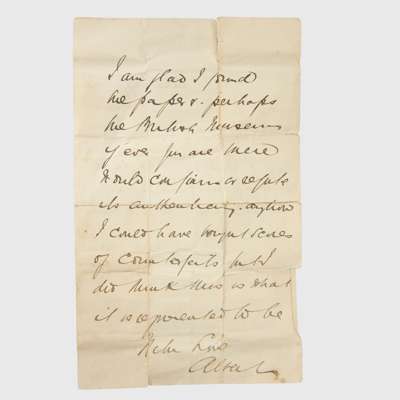 I am glad I found
the paper & perhaps
the British Museum
if ever you are there
would confirm or refute
its authenticity. anyhow
I could have bought scores
of counterfeits but I
did think this is what
it is represented to be
With Love
Albert